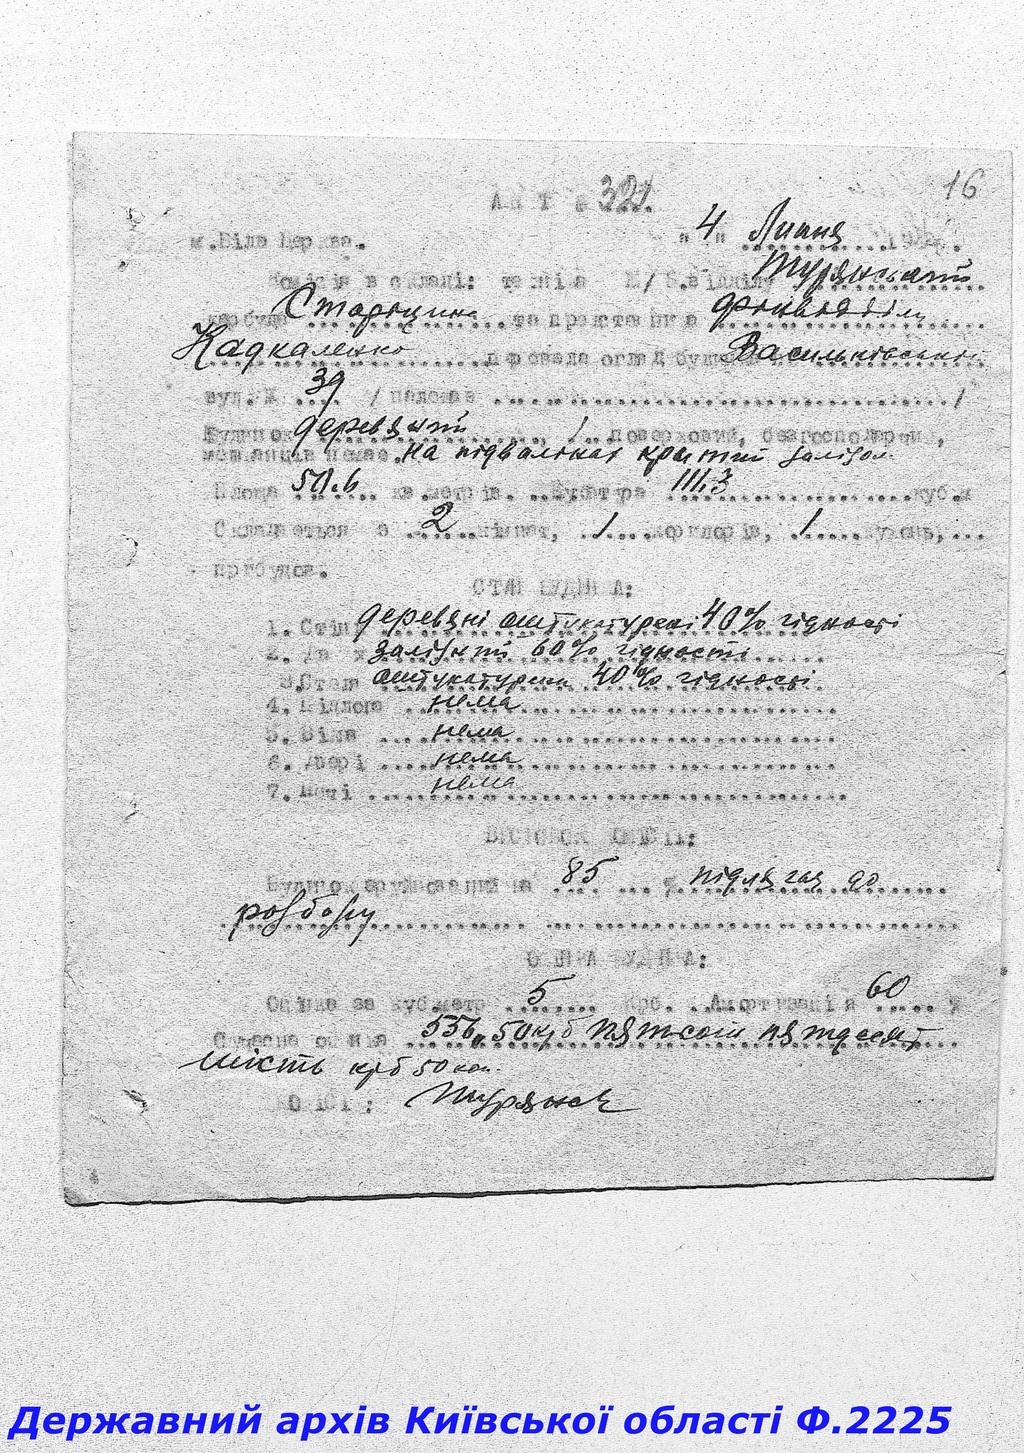 16
А К Т № 321.
м.Біла Церква. "4" Липня
Комісія в складі: техніка Ж/Б.відділу Турянський
Старіцина та представника фінвідділу
Кадкаленко провела огляд будинку Васильківська
вул.№ 39 /належав /
Будинок деревяний, 1 поверховий, безгосподарчий,
мешканців немає. На підвалінах критий залізом
Площа 50.6 кв.метрів. Кубатура 111.3 куб.м
Складається з 2 кімнат, 1 коридорів, 1 кухонь,
прибудов.
СТАН БУДИНКА:
1. Стіни деревяні оштукатурені 40% гідності
2. Дах залізний 60% гідності
3.Стеля оштукатурена 40% гідності
4. Підлога нема
5. Вікна нема
6. Двері нема
7. Печі нема
ВИСНОВОК КОМІСІЇ:
Будинок зруйнований на 85 % підлягає до
розбору
ОЦІНКА БУДИНКА:
Оцінка за куб.метр 5 крб. Амортизація 60 %
Сучасна оцінка 556,50 крб Пятьсот пятдесят
шість крб 50 коп.
КОМІСІЯ: Турянск
Державний архів Київської області Ф.2225